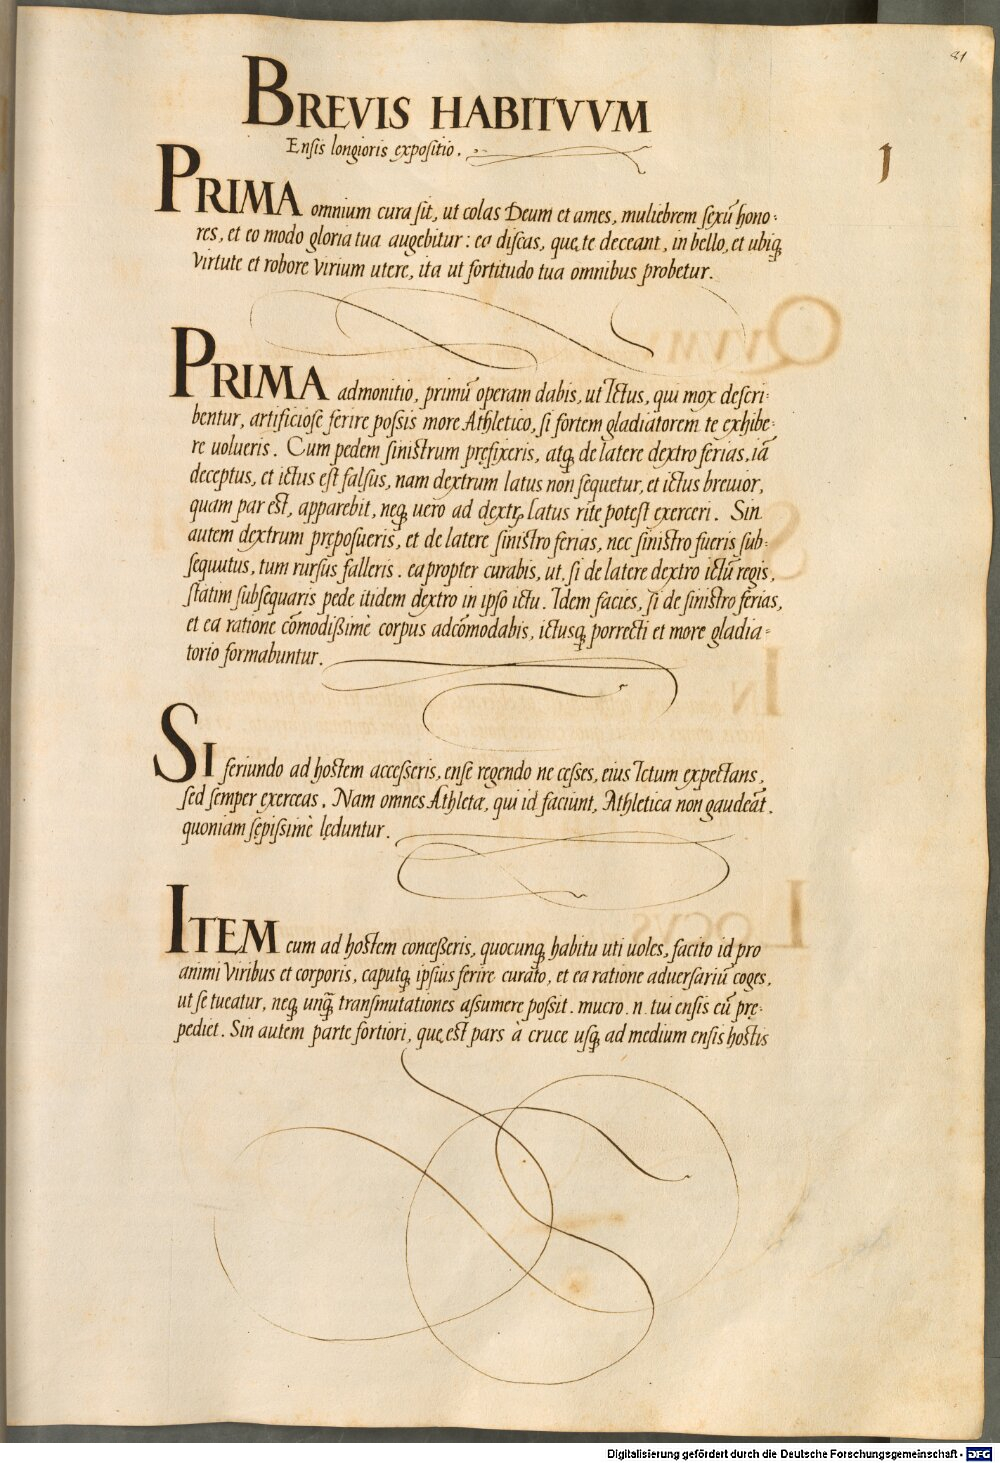 81
BREVIS HABITVVM
Ensis longioris expositio.
1
PRIMA omnium cura sit, ut colas Deum et ames, muliebrem sexū hono=
res, et eo modo gloria tua augebitur: ea discas, quę te deceant, in bello, et ubiq;
virtute et robore virium utere, ita ut fortitudo tua omnibus probetur.
PRIMA admonitio, primū operam dabis, ut Ictus, qui mox descri=
bentur, artificiose ferire possis more Athletico, si fortem gladiatorem te exhibe=
re uolueris. Cum pedem sinistrum prefixeris, atq; de latere dextro ferias, iā
deceptus, et ictus est falsus, nam dextrum latus non sequetur, et ictus breuior,
quam par est, apparebit, neq; uero ad dextrū latus rite potest exerceri. Sin
autem dextrum preposueris, et de latere sinistro ferias, nec sinistro fueris sub=
sequutus, tum rursus falleris. eapropter curabis, ut, si de latere dextro ictū regis,
statim subsequaris pede itidem dextro in ipso ictu. Idem facies, si de sinistro ferias,
et ea ratione cōmodißimè corpus adcōmodabis, ictusq; porrecti et more gladia=
torio formabuntur.
SI feriundo ad hostem accesseris, ense regendo ne cesses, eius Ictum expectans,
sed semper exerceas. Nam omnes Athletæ, qui id faciunt, Athletica non gaudeāt.
quoniam sępissimè lęduntur.
ITEM cum ad hostem conceßeris, quocunq; habitu uti uoles, facito id pro
animi viribus et corporis, caputq; ipsius ferire curato, et ea ratione aduersariū coges,
ut se tueatur, neq; unq̄ transmutationes assumere possit. mucro .n. tui ensis eū pre=
pediet. Sin autem parte fortiori, quę est pars à cruce usq; ad medium ensis hostis
Digitalisierung gefördert durch die Deutsche Forschungsgemeinschaft - DFG